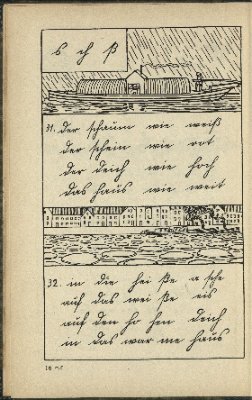 s ch ß
31. der schaum wie weiß
der schein wie rot
der deich wie hoch
das haus wie weit
32. in die hei ße a sche
auf das wei ße eis
auf den ho hen deich
in das war me haus
16